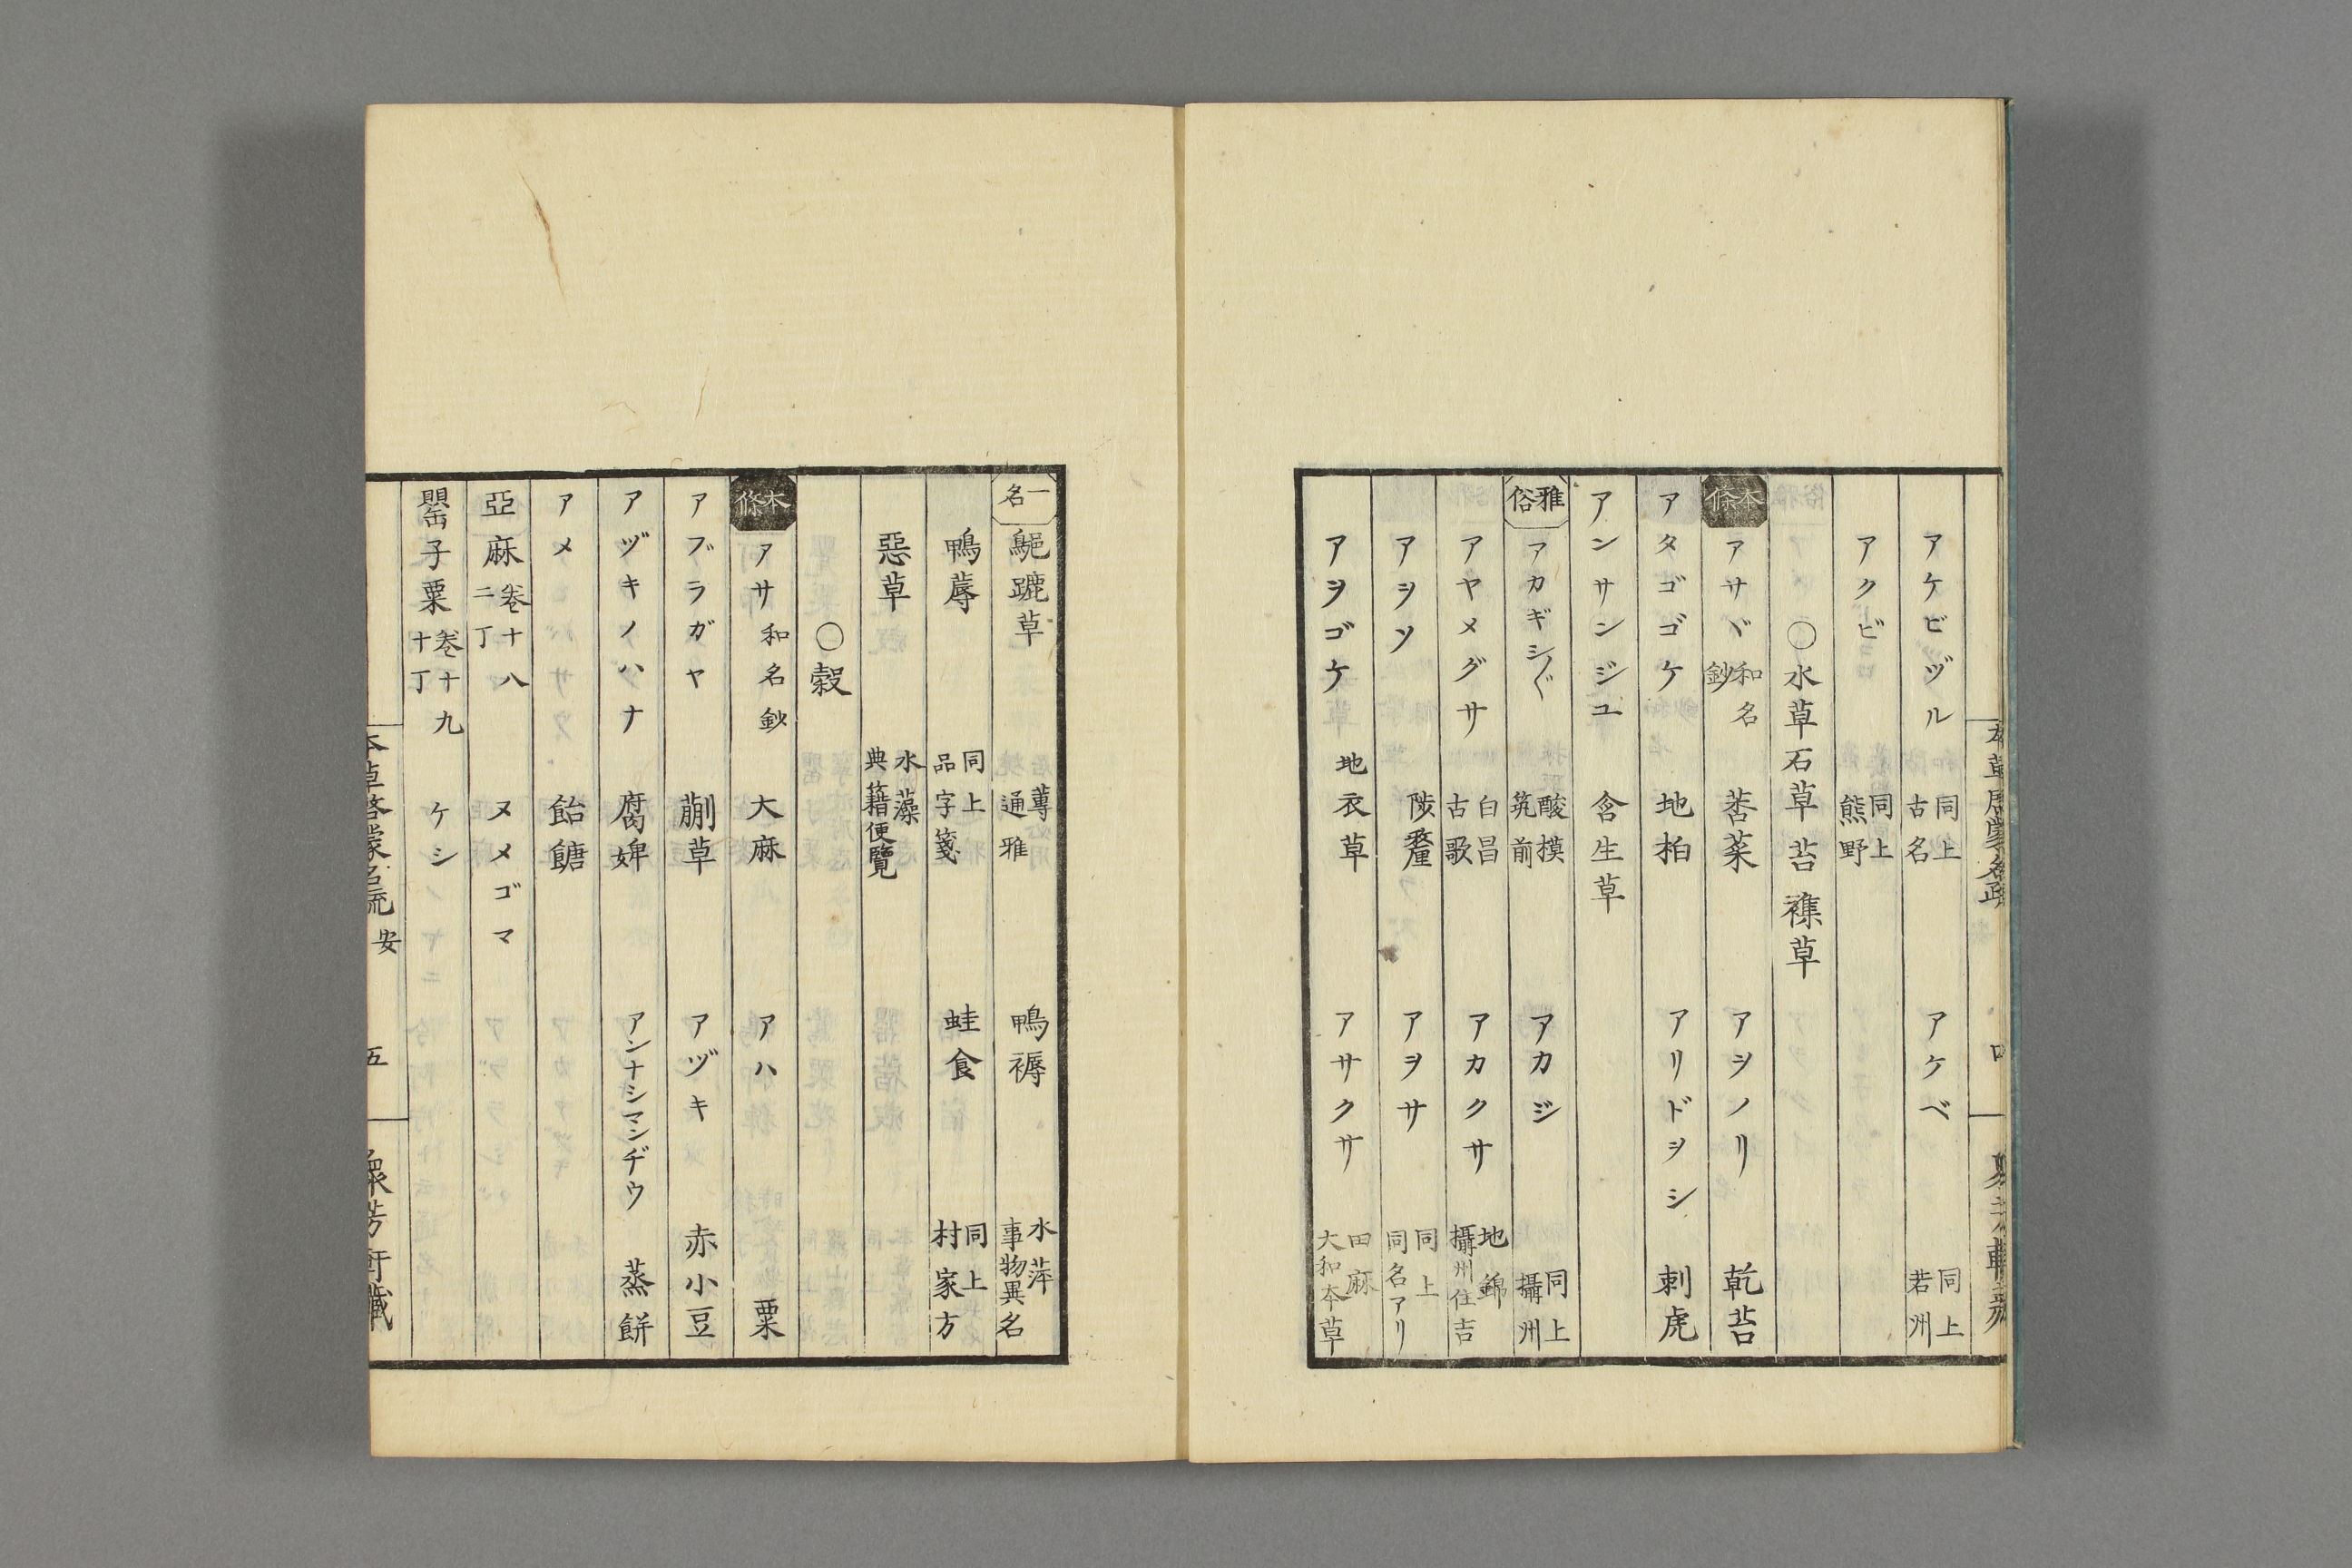 アケビヅル 同上 古名 アケベ 同上 若州
アクビ 同上 熊野
○水草石草苔襍草
本條 アサヾ 和名鈔 莕菜 アヲノリ 乾苔
アタゴゴケ 地柏 アリドヲシ 刺虎
アンサンジユ 含生草
雅俗 アカギシ〴〵 酸摸 筑前 アカジ 同上 攝州
アヤメグサ 白昌 古歌 アカクサ 地錦 攝州住吉
アヲソ 陟釐 アヲサ 同上 同名アリ
アヲゴケ 地衣草 アサクサ 田麻 大和本草
一名 䠒草 蓴 通雅 鴨褥 水萍 事物異名
鴨蓐 同上 品字箋 蛙食 同上 村家方
惡草 水藻 典籍便覽
○穀
本條 アサ 和名鈔 大麻 アハ 粟
アブラガヤ 蒯草 アヅキ 赤小豆
アヅキノハナ 腐婢 アンナシマンヂウ 蒸餅
アメ 飴餹
亞麻 卷十八 二丁 ヌメゴマ
罌子粟 卷十九 十丁 ケシ
本草啓蒙名疏 安 五 衆芳軒藏